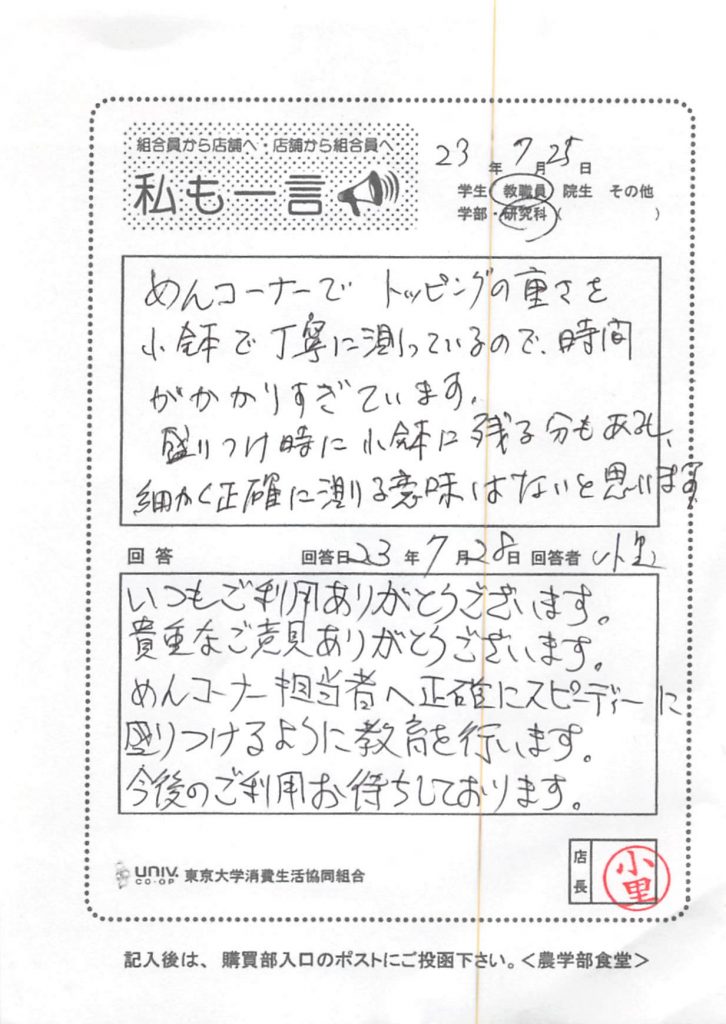 組合員から店舗へ・店舗から組合員へ
私も一言
23年7月25日
学生 教職員 院生 その他
学部・研究科( )
めんコーナーで トッピングの重さを
小鉢で丁寧に測っているので、時間
がかかりすぎています。
盛りつけ時に小鉢に残る分もあるし、
細かく正確に測る意味はないと思います
回答 回答日23年7月28日 回答者 小里
いつもご利用ありがとうございます。
貴重なご意見ありがとうございます。
めんコーナー担当者へ正確にスピーディーに
盛りつけるように教育を行います。
今後のご利用お待ちしております。
店長 小里
UNIV. CO-OP 東京大学消費生活協同組合
記入後は、購買部入口のポストにご投函下さい。<農学部食堂>